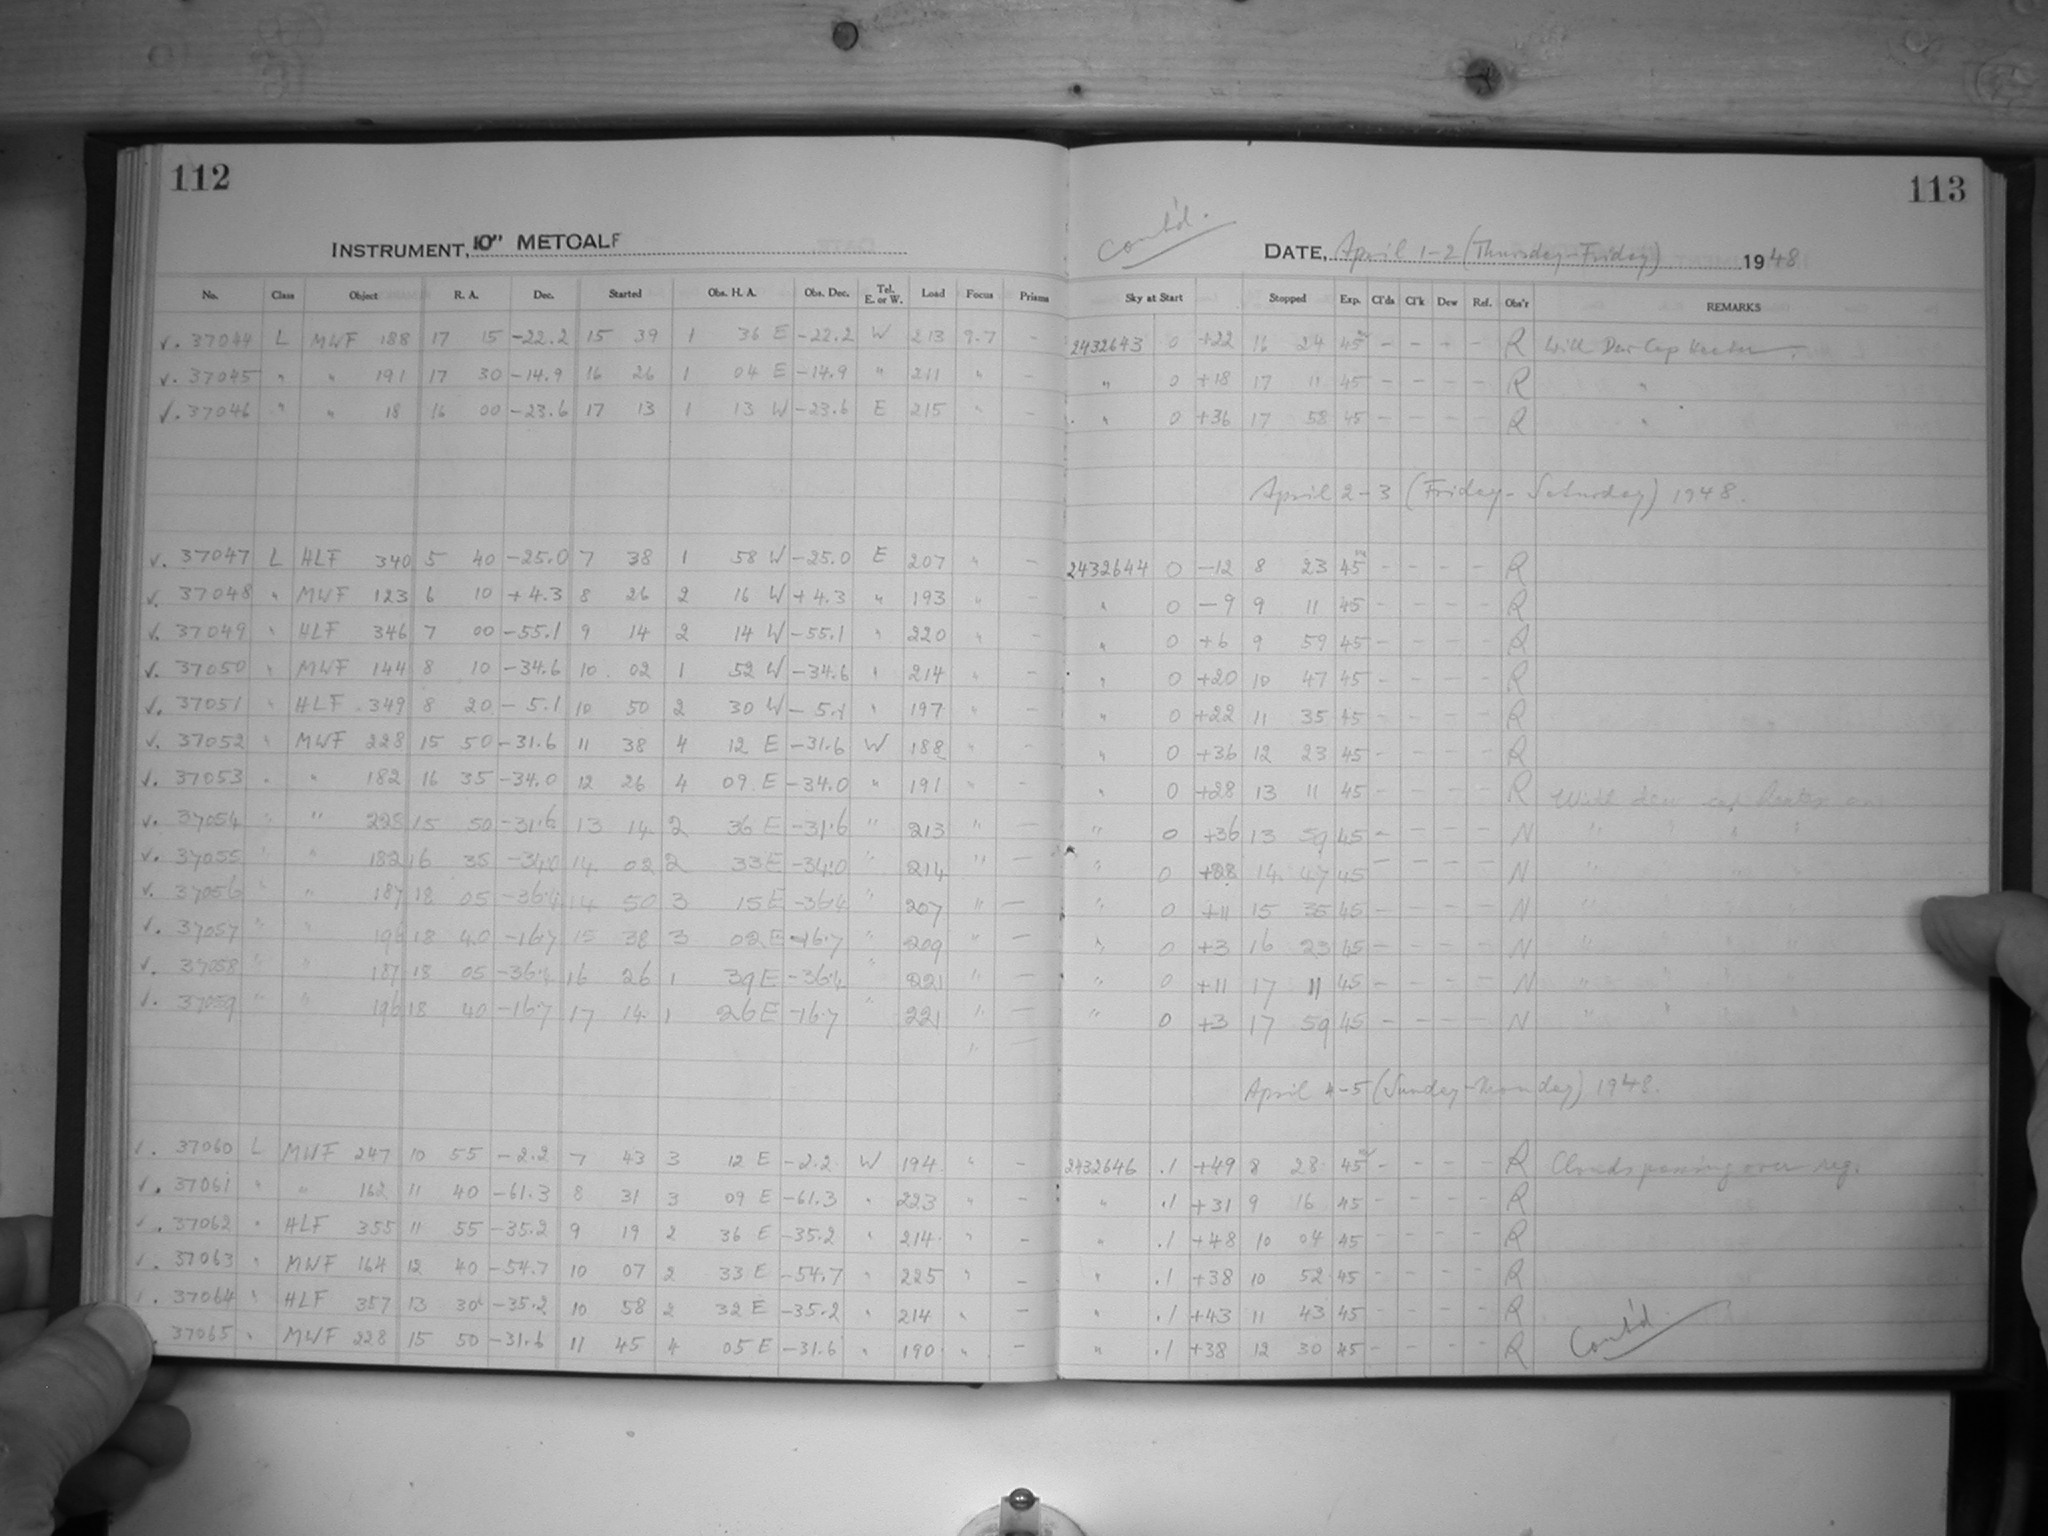 112
113
INSTRUMENT, 10" METCALF
Cont'd.
DATE, April 1-2 (Thursday-Friday) 1948
No. Class Object R. A. Dec. Started Obs. H. A. Obs. Dec. Tel. E. or W. Load Focus Prisms Sky at Start Stopped Exp. Cl'ds Cl'k Dew Ref. Obs'r REMARKS
v. 37044 L MWF 188 17 15 -22.2 15 39 1 36 E -22.2 W 213 9.7 - 2432643 0 +22 16 24 45 - - - - R With Dew Cap Heater.
v. 37045 " " 191 17 30 -14.9 16 26 1 04 E -14.9 " 211 " - " 0 +18 17 11 45 - - - - R "
v. 37046 " " 18 16 00 -23.6 17 13 1 13 W -23.6 E 215 " - " 0 +36 17 58 45 - - - - R "
April 2-3 (Friday-Saturday) 1948.
v. 37047 L HLF 340 5 40 -25.0 7 38 1 58 W -25.0 E 207 " - 2432644 0 -12 8 23 45 - - - - R
v. 37048 " MWF 123 6 10 +4.3 8 26 2 16 W +4.3 " 193 " - " 0 -9 9 11 45 - - - - R
v. 37049 " HLF 346 7 00 -55.1 9 14 2 14 W -55.1 " 220 " - " 0 +6 9 59 45 - - - - R
v. 37050 " MWF 144 8 10 -34.6 10 02 1 52 W -34.6 " 214 " - " 0 +20 10 47 45 - - - - R
v. 37051 " HLF 349 8 20 -5.1 10 50 2 30 W -5.1 " 197 " - " 0 +22 11 35 45 - - - - R
v. 37052 " MWF 228 15 50 -31.6 11 38 4 12 E -31.6 W 188 " - " 0 +36 12 23 45 - - - - R
v. 37053 " " 182 16 35 -34.0 12 26 4 09 E -34.0 " 191 " - " 0 +28 13 11 45 - - - - R With dew cap heater on
v. 37054 " " 228 15 50 -31.6 13 14 2 36 E -31.6 " 213 " - " 0 +36 13 59 45 - - - - N " " " "
v. 37055 " " 182 16 35 -34.0 14 02 2 33 E -34.0 " 214 " - " 0 +28 14 47 45 - - - - N " " "
v. 37056 " " 187 18 05 -36.4 14 50 3 15 E -36.4 " 207 " - " 0 +11 15 35 45 - - - - N " " "
v. 37057 " " 196 18 40 -16.7 15 38 3 02 E -16.7 " 209 " - " 0 +3 16 23 45 - - - - N " " "
v. 37058 " " 187 18 05 -36.4 16 26 1 39 E -36.4 " 221 " - " 0 +11 17 11 45 - - - - N " " " "
v. 37059 " " 196 18 40 -16.7 17 14 1 26 E -16.7 " 221 " - " 0 +3 17 59 45 - - - - N " " "
" -
April 4-5 (Sunday-Monday) 1948.
v. 37060 L MWF 247 10 55 -2.2 7 43 3 12 E -2.2 W 194 " - 2432646 .1 +49 8 28 45 - - - - R Clouds passing over reg.
v. 37061 " " 162 11 40 -61.3 8 31 3 09 E -61.3 " 223 " - " .1 +31 9 16 45 - - - - R
v. 37062 " HLF 355 11 55 -35.2 9 19 2 36 E -35.2 " 214 " - " .1 +48 10 04 45 - - - - R
v. 37063 " MWF 164 12 40 -54.7 10 07 2 33 E -54.7 " 225 " - " .1 +38 10 52 45 - - - - R
v. 37064 " HLF 357 13 30 -35.2 10 58 2 32 E -35.2 " 214 " - " .1 +43 11 43 45 - - - - R
37065 " MWF 228 15 50 -31.6 11 45 4 05 E -31.6 " 190 " - " .1 +38 12 30 45 - - - - R Cont'd.